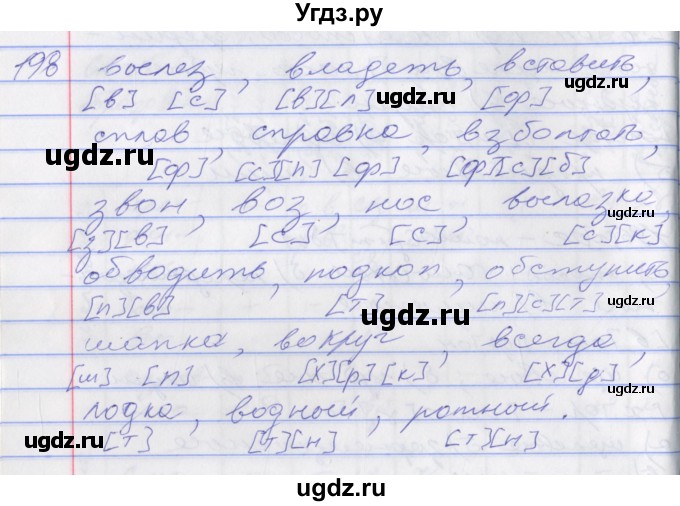 Угдз.ру
198 вылез, владеть, вставить,
[в] [с] [в][л] [ф]
сплав, справка, взболтать,
[ф] [с][п] [ф] [ф][с][б]
звон, воз, нос, вылазка,
[з][в] [с] [с] [с][к]
обводить, подкоп, обступить,
[п][в] [т] [п][с][т]
шапка, вокруг, всегда,
[ш] [п] [х][р][к] [х][д]
лодка, водный, ротный.
[т] [т][н] [т][н]
ugdz.ru
ugdz.ru
ugdz.ru
ugdz.ru
ugdz.ru
ugdz.ru
ugdz.ru
ugdz.ru
ugdz.ru
ugdz.ru
ugdz.ru